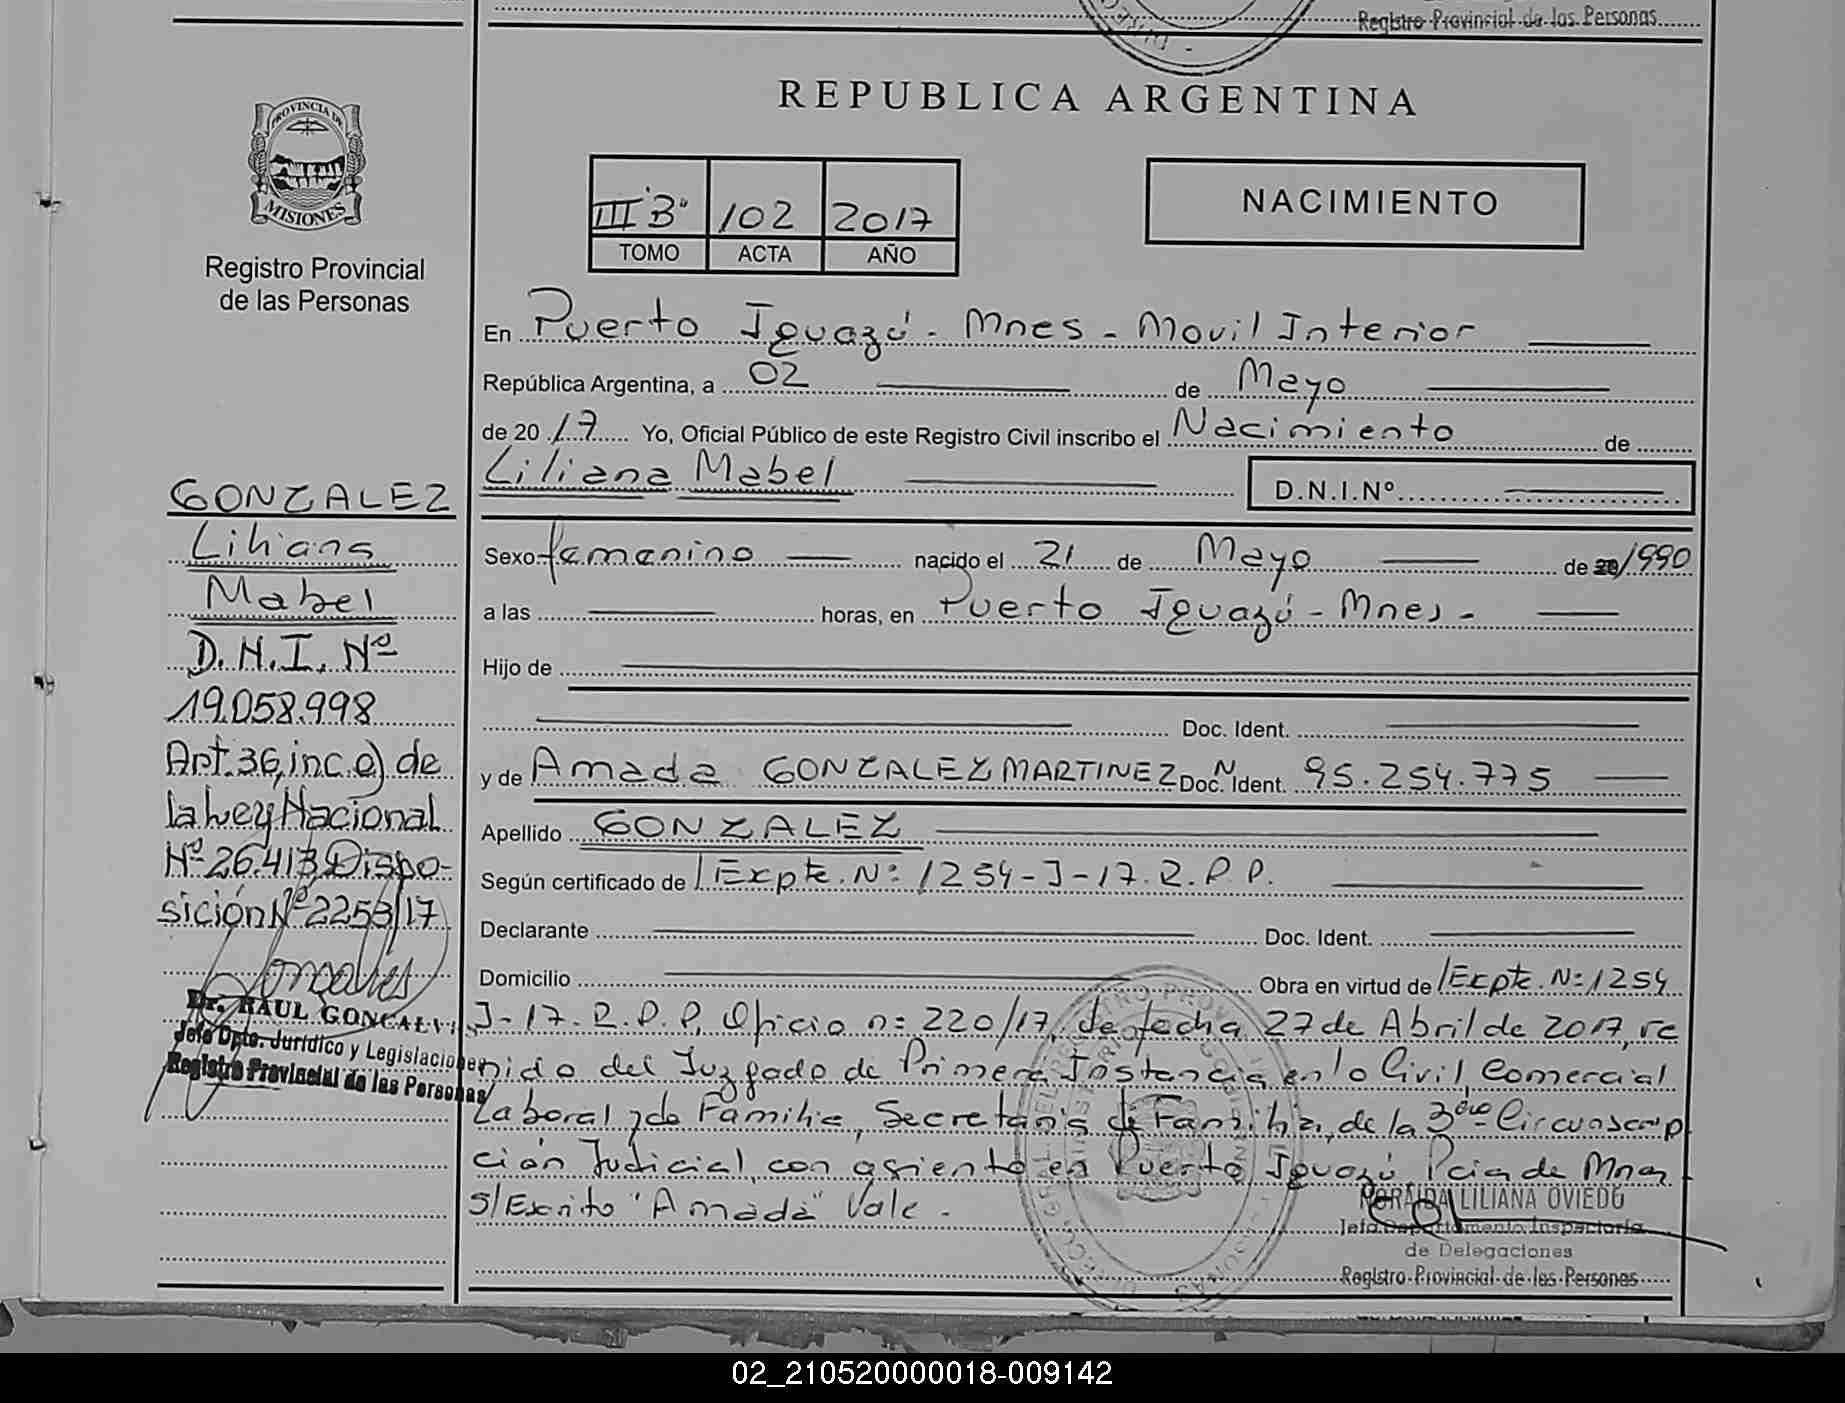 Registro Provincial de las Personas
REPUBLICA ARGENTINA
PROVINCIA DE
MISIONES
Registro Provincial
de las Personas
III "B" 102 2017
TOMO ACTA AÑO
NACIMIENTO
En Puerto Iguazú - Mnes - Movil Interior
República Argentina, a 02 de Mayo
de 20 17 Yo, Oficial Público de este Registro Civil inscribo el Nacimiento de
Liliana Mabel D.N.I.Nº
Sexo femenino nacido el 21 de Mayo de 1990
a las horas, en Puerto Iguazú - Mnes -
Hijo de
Doc. Ident.
y de Amada GONZALEZ MARTINEZ Doc. Ident. N 95.254.775
Apellido GONZALEZ
Según certificado de Expte. Nº 1254-J-17. R. P. P.
Declarante Doc. Ident.
Domicilio Obra en virtud de Expte. Nº 1254
J-17. R. P. P. Oficio nº 220/17, de fecha 27 de Abril de 2017, re
nido del Juzgado de Primera Instancia en lo Civil, Comercial
Laboral y de Familia, Secretaría de Familia, de la 3era Circunscrip
ción Judicial con asiento en Puerto Iguazú Pcia de Mnes
S/ Escrito "Amada" Vale -
GONZALEZ
Liliana
Mabel
D.N.I. Nº
19.058.998
Art. 36, inc. e) de
la Ley Nacional
Nº 26.413 Dispo-
sición Nº 2253/17
Dr. RAUL GONCALVES
Jefe Dpto. Jurídico y Legislaciones
Registro Provincial de las Personas
NORAIDA LILIANA OVIEDO
Jefa Departamento Inspectoría
de Delegaciones
Registro Provincial de las Personas
02_210520000018-009142